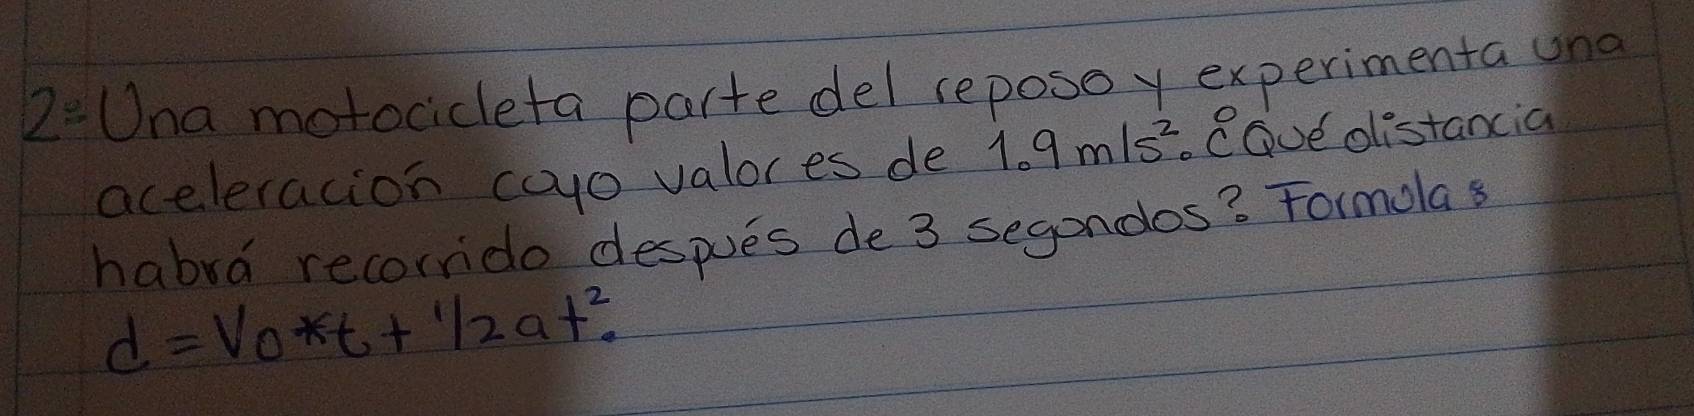 2= Una motocicleta parte del reposo y experimenta una
aceleración cuyo valor es de 1.9 m/s². ¿Qué distancia
habrá recorrido después de 3 segundos? Formulas
d = Vo*t + 1/2 at².